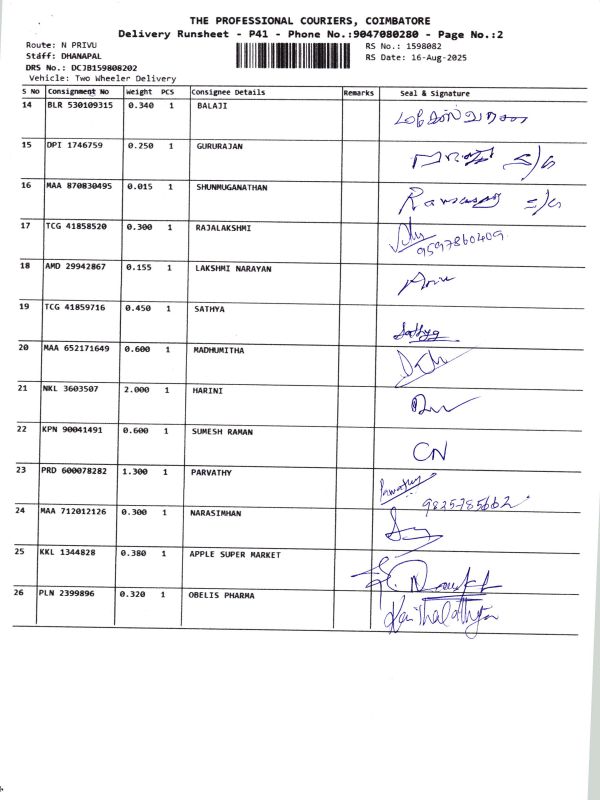 THE PROFESSIONAL COURIERS, COIMBATORE
Delivery Runsheet - P41 - Phone No.:9047080280 - Page No.:2
Route: N PRIVU RS No.: 1598082
Staff: DHANAPAL RS Date: 16-Aug-2025
DRS No.: DCJB159808202
Vehicle: Two Wheeler Delivery
S No Consignment No Weight PCS Consignee Details Remarks Seal & Signature
14 BLR 530109315 0.340 1 BALAJI
15 DPI 1746759 0.250 1 GURURAJAN S/G
16 MAA 870830495 0.015 1 SHUNMUGANATHAN
17 TCG 41858520 0.300 1 RAJALAKSHMI
9597860409
18 AMD 29942867 0.155 1 LAKSHMI NARAYAN
19 TCG 41859716 0.450 1 SATHYA
Sathya
20 MAA 652171649 0.600 1 MADHUMITHA
21 NKL 3603507 2.000 1 HARINI
22 KPN 90041491 0.600 1 SUMESH RAMAN
CN
23 PRD 600078282 1.300 1 PARVATHY
Parvathy
9825785662
24 MAA 712012126 0.300 1 NARASIMHAN
25 KKL 1344828 0.380 1 APPLE SUPER MARKET
26 PLN 2399896 0.320 1 OBELIS PHARMA